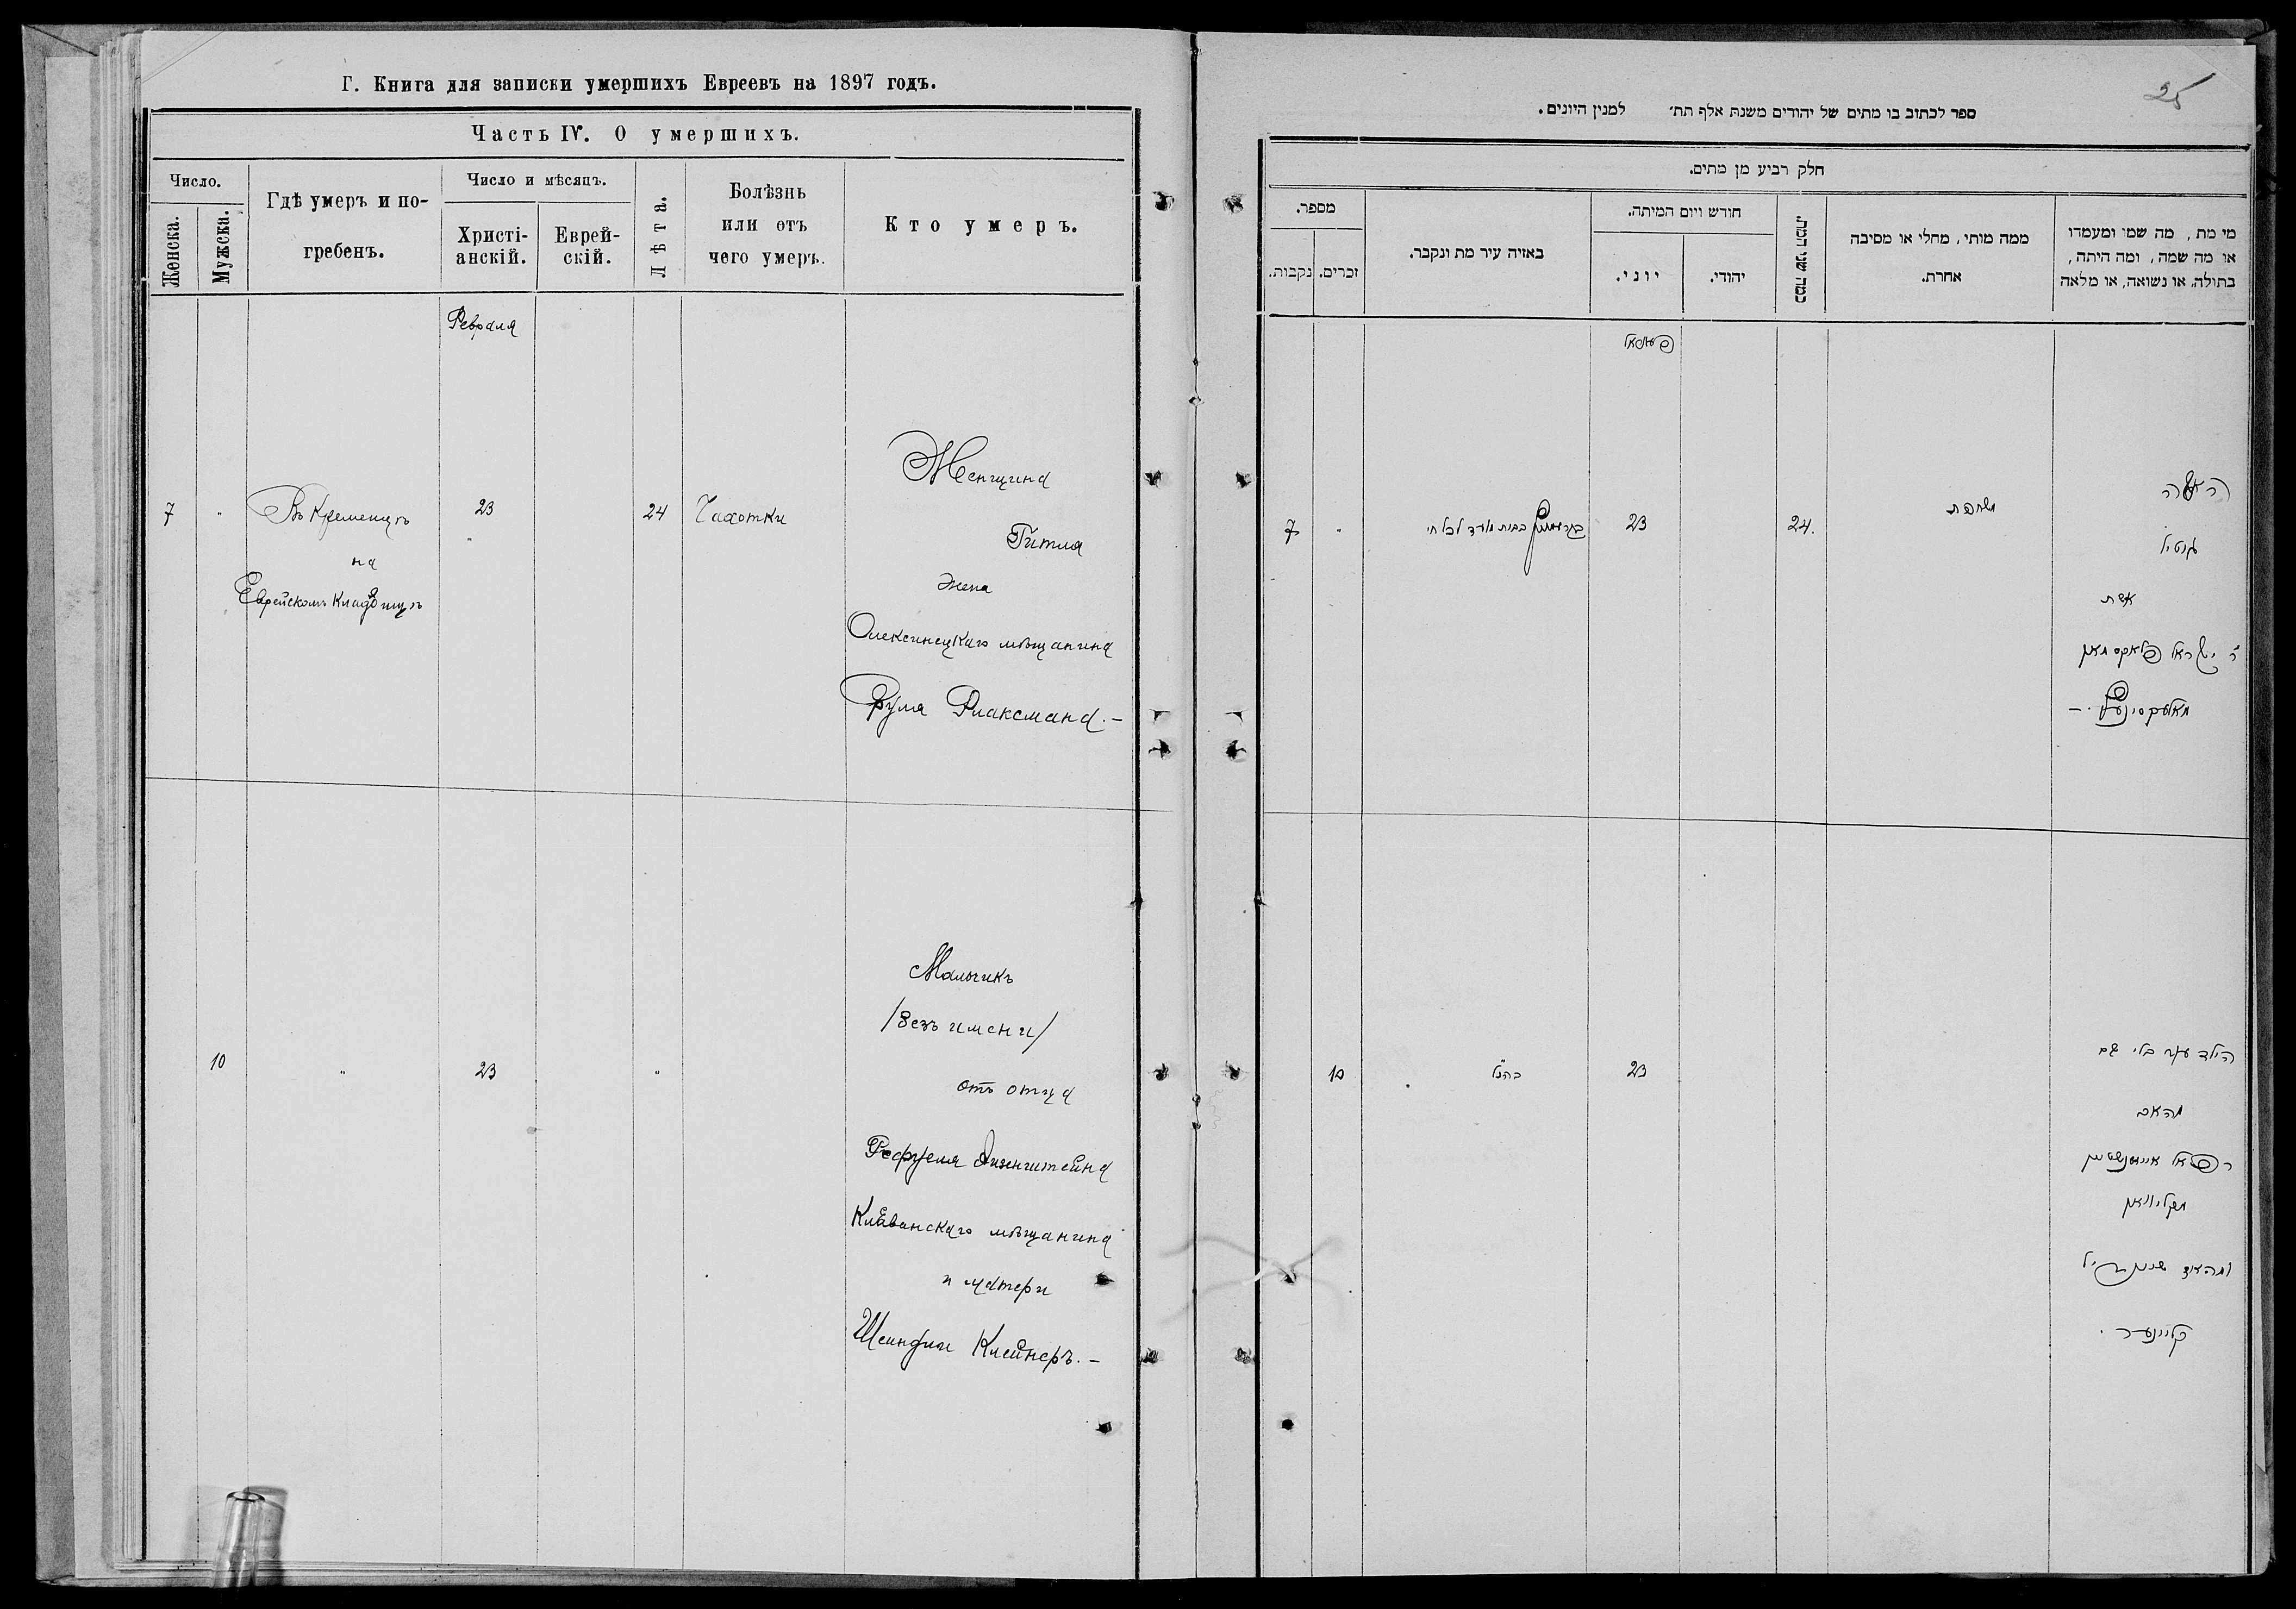 Г. Книга для записки умершихъ Евреевъ на 1897 годъ.
Часть IV. О умершихъ.
Число.
Женска.
Мужска.
Гдѣ умеръ и по-
гребенъ.
Число и мѣсяцъ.
Христі-
анскій.
Еврей-
скій.
Лѣта.
Болѣзнь
или отъ
чего умеръ.
Кто умеръ.
Февраля
7
"
Въ Кременцѣ
на
Еврейскомъ Кладбищѣ
23
"
24
Чахотки
Женщина
Гитля
жена
Олексинецкаго мѣщанина
Сруля Флаксмана.—
10
"
23
"
Мальчикъ
/безъ имени/
отъ отца
Рефуеля Айзенштейна
Клеванскаго мѣщанина
и матери
Шейндли Клейнеръ.—
25
ספר לכתוב בו מתים של יהודים משנת אלף תת׳ למנין היונים.
חלק רביע מן מתים.
מספר.
נקבות.
זכרים.
באיזה עיר מת ונקבר.
חודש ויום המיתה.
יוני.
יהודי.
כמה שני המת.
ממה מותי, מחלי או מסיבה
אחרת.
מי מת, מה שמו ומעמדו
או מה שמה, ומה היתה,
בתולה, או נשואה, או מלאה
7
"
בבית מועד לכל חי
23
24.
משחפת
האשה
גיטיל
אשת
ר׳ ישראל פלאקסמאן
10
בהנ"ל
23
הילד בלי שם
מהאב
רפאל אייזנשטיין
מקליוואן
קליינער.